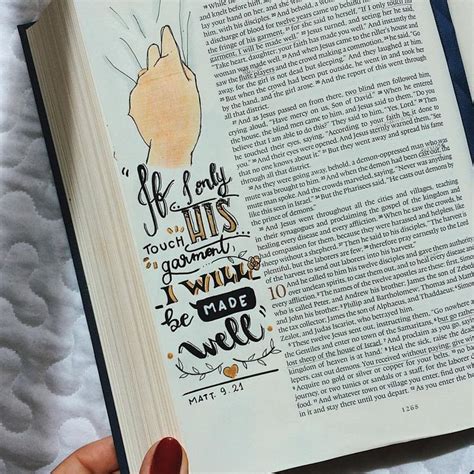 "If I only
TOUCH HIS
garment,
I WILL
be MADE
well"
MATT. 9.21
and knelt before him, saying, "My daughter has just died, but come and
lay your hand on her, and she will live." And Jesus rose and followed
him, with his disciples. And behold, a woman who had suffered from a
for twelve years came up behind him and touched
the fringe of his garment, for she said to herself, "If I only touch his
garment, I will be made well." Jesus turned, and seeing her he said,
"Take heart, daughter; your faith has made you well." And instantly the
And when Jesus came to the ruler's house and
saw the flute players and the crowd making a commotion, he said, "Go
away, for the girl is not dead but sleeping." And they laughed at him.
But when the crowd had been put outside, he went in and took her
by the hand, and the girl arose. And the report of this went through
And as Jesus passed on from there, two blind men followed him,
crying aloud, "Have mercy on us, Son of David." When he entered
the house, the blind men came to him, and Jesus said to them, "Do you
believe that I am able to do this?" They said to him, "Yes, Lord." Then
he touched their eyes, saying, "According to your faith be it done to
you." And their eyes were opened. And Jesus sternly warned them, "See
that no one knows about it." But they went away and spread his fame
As they were going away, behold, a demon-oppressed man who was
mute was brought to him. And when the demon had been cast out, the
mute man spoke. And the crowds marveled, saying, "Never was anything
like this seen in Israel." But the Pharisees said, "He casts out demons by
the prince of demons."
And Jesus went throughout all the cities and villages, teaching
in their synagogues and proclaiming the gospel of the kingdom and
healing every disease and every affliction. When he saw the crowds, he
had compassion for them, because they were harassed and helpless, like
sheep without a shepherd. Then he said to his disciples, "The harvest is
plentiful, but the laborers are few; therefore pray earnestly to the Lord
of the harvest to send out laborers into his harvest."
10 And he called to him his twelve disciples and gave them authority
over unclean spirits, to cast them out, and to heal every disease and
every affliction. The names of the twelve apostles are these: first,
and John his brother; Philip and Bartholomew; Thomas and Matthew
the tax collector; James the son of Alphaeus, and Thaddaeus; Simon the
Zealot, and Judas Iscariot, who betrayed him.
These twelve Jesus sent out, instructing them, "Go nowhere among
the Gentiles and enter no town of the Samaritans, but go rather to the
lost sheep of the house of Israel. And proclaim as you go, saying, 'The
kingdom of heaven is at hand.' Heal the sick, raise the dead, cleanse
lepers, cast out demons. You received without paying; give without pay.
Acquire no gold or silver or copper for your belts, no bag for your
journey, or two tunics or sandals or a staff, for the laborer deserves his
food. And whatever town or village you enter, find out who is worthy in
it and stay there until you depart. As you enter the house, greet it.
1265